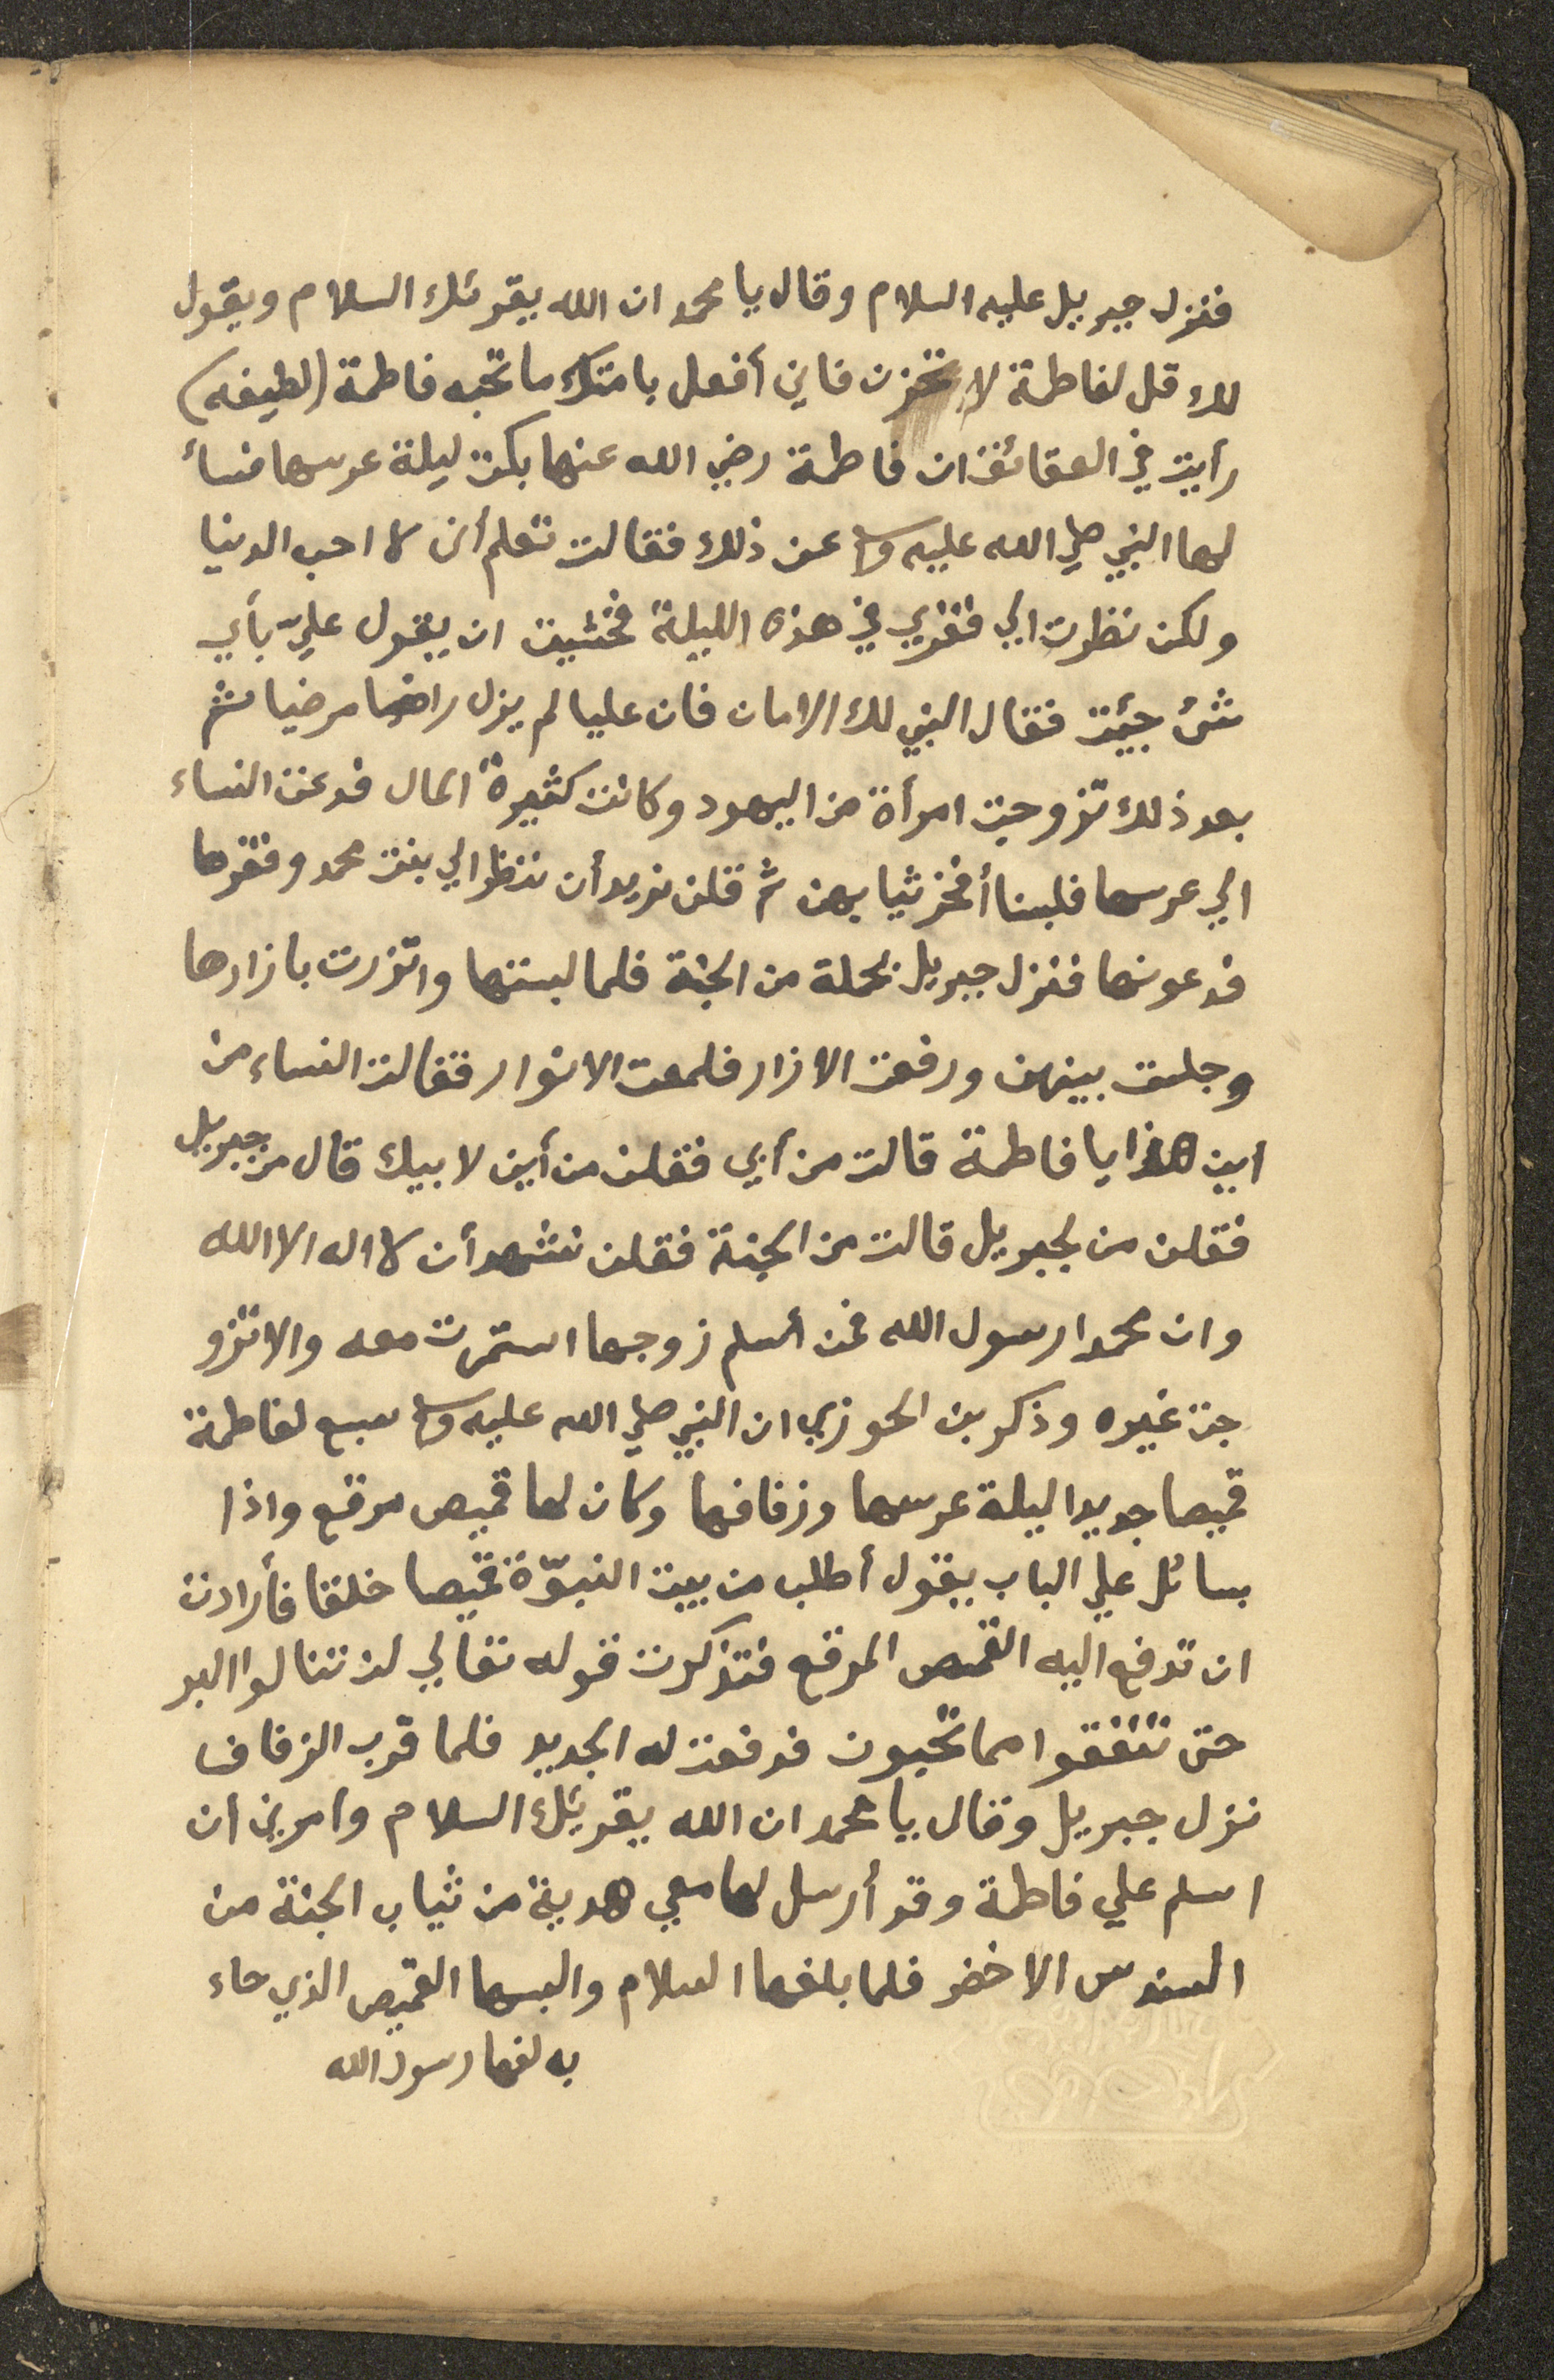 فنزل جبريل عليه السلام وقال يا محمد ان الله يقرئك السلام ويقول
لك قل لفاطمة لا تحزن فاني أفعل بامتك ما تحبه فاطمة (لطيفه)
رأيت في العقائق ان فاطمة رضي الله عنها بكت ليلة عرسها فسأ
لها النبي صلي الله عليه وسلم عن ذلك فقالت تعلم أني لا احب الدنيا
ولكن نظرت الي فقري في هذه الليلة فخشيت ان يقول عليّ بأي
شئ جيئت فقال النبي لك الامان فان عليا لم يزل راضيا مرضيا ثم
بعد ذلك تزوجت امرأة من اليهود وكانت كثيرة المال فدعت النساء
الي عرسها فلبسنا أفخر ثيابهن ثم قلن نريد أن ننظر الي بنت محمد وفقرها
فدعونها فنزل جبريل بحلة من الجنة فلما لبستها واتزرت بازارها
وجلست بينهن ورفعت الازار فلمعت الانوار فقالت النساء من
اين هذا يا فاطمة قالت من أبي فقلن من أين لابيك قال من جبريل
فقلن من لجبريل قالت من الجنة فقلن نشهد أن لا اله الا الله
وان محمدا رسول الله فمن أسلم زوجها استمرت معه والا تزو
جت غيره وذكر بن الجوزي ان النبي صلي الله عليه وسلم سبع لفاطمة
قميصا جديدا ليلة عرسها وزفافها وكان لها قميص مرقع واذا
بسائل علي الباب يقول أطلب من بيت النبوّة قميصا خلقا فأرادت
ان تدفع اليه القميص المرقع فتذكرت قوله تعالي لن تنالوا البر
حتى تنفقوا مما تحبون فدفعت له الجديد فلما قرب الزفاف
نزل جبريل وقال يا محمد ان الله يقريئك السلام وامرني ان
اسلم علي فاطمة وقد أرسل لها معي هدية من ثياب الجنة من
السندس الاخضر فلما بلغها السلام والبسها القميص الذي جاء
به لفها رسول الله